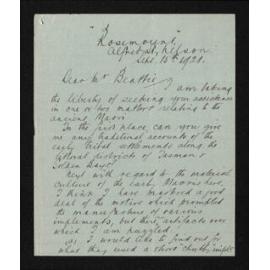 "Rosemount",
Alfred St, Nelson
Sept. 15th 1920.
Dear Mr Beattie,
I am taking
the liberty of seeking your assistance
in one or two matters relating to the
ancient Maori
In the first place, can you give
me any traditional accounts of the
early tribal settlements along the
littoral districts of Tasman &
Golden Bays?
Next with regard to the material
culture of the early Maoris here,
I think I have mastered a good
deal of the motive which prompted
the manufacture of various
implements, but there artifacts over
which I am puzzled.
I would like to find out for
what they used a short chunky